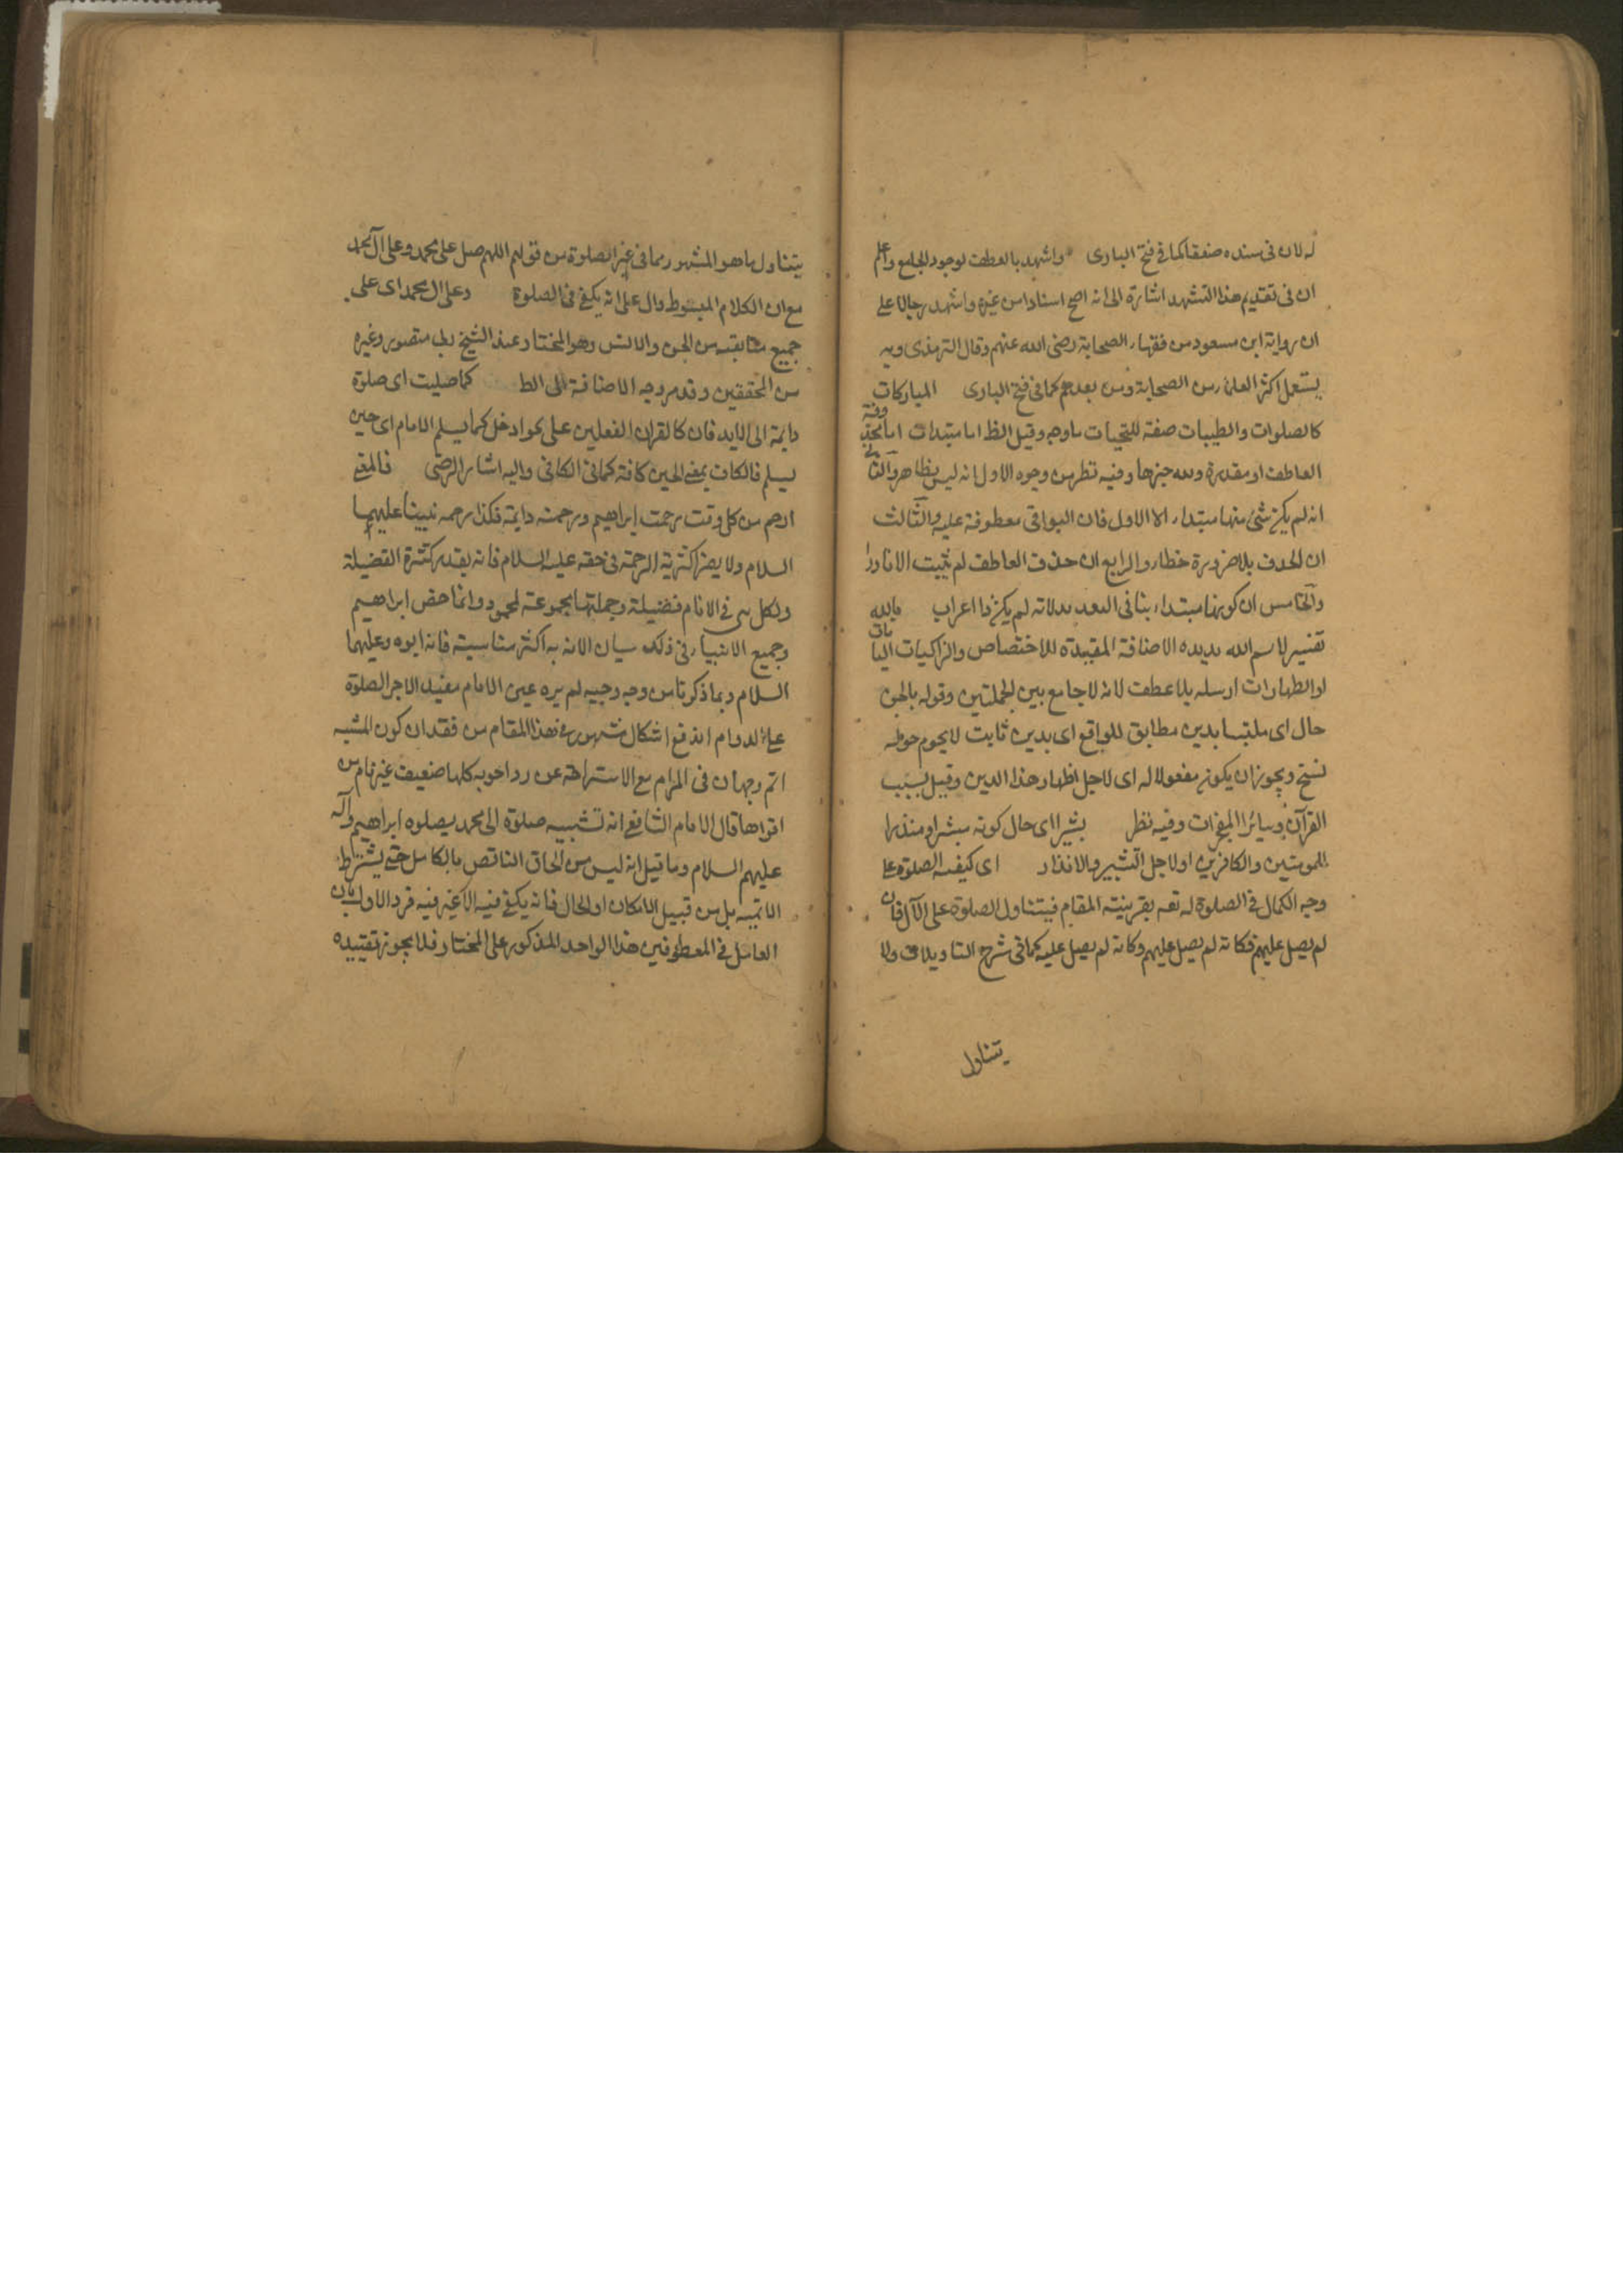 له لان فى سنده ضعفا كما فى فتح البارى واشهد بالعطف لوجود الجامع واعلم
ان فى تقديم هذا التشهد اشارة الى انه اصح اسنادا من غيره واشهد رجالا على
ان رواية ابن مسعود من فقهاء الصحابة رضى الله عنهم وقال الترمذى وبه
يستعمل اكثر العلماء من الصحابة ومن بعدهم كما فى فتح البارى المباركات
كالصلوات والطيبات صفة للتحيات وقيل الظ اما مبتدات اما محذوفة
العاطف او مقدرة ولله خبرها وفيه نظر من وجوه الاول انه ليس بظاهر والثانى
انه لم يكن شئ منها مبتداء الا الاول فان البواقى معطوفة عليه والثالث
ان الحذف بلا ضرورة خطاء والرابع ان حذف العاطف لم يثبت الا نادرا
والخامس ان كونها مبتداء ينافى لم يكن ذا اعراب بالله
تفسير لاسم الله الاضافة المفيدة للاختصاص والزاكيات الناميات
او الطهارات ارسله بلا عطف لانه لا جامع بين الجملتين وقوله بالحق
حال اى ملتبسا بدين مطابق للواقع اى بدين ثابت لا يحوم حوله
نسخ ويجوز ان يكون مفعولا له اى لاجل اظهار هذا الدين وقيل بسبب
القرآن وسائر المعجزات وفيه نظر بشيرا اى حال كونه مبشرا ومنذرا
للمومنين والكافرين او لاجل التبشير والانذار اى كيفية الصلوة على
وجه الكمال فى الصلوة له بقرينة المقام فيتناول الصلوة على الآل فان
لم يصل عليهم فكانه لم يصل عليهم وكانه لم يصل عليه كما فى شرح التاويلات ولا
يتناول
يتناول ما هو المشهور مما فى غير الصلوة من قولهم اللهم صل على محمد وعلى آل محمد
مع ان الكلام المبسوط دال على انه يكفى فى الصلوة وعلى ال محمد اى على
جميع متابعيه من الجن والانس وهو المختار عند الشيخ منصور وغيره
من المحققين وقد مر وجه الاضافة الى الظ كما صليت اى صلوة
دايمة الى الابد فان كالقران الفعلين على نحو ادخل كما يسلم الامام اى حين
يسلم فالكاف بمعنى الحين كافة كما فى الكافى واليه اشار الرضى فالمعنى
ارحم من كل وقت رحمت ابراهيم ورحمته دايمة فكذا رحمه نبينا عليهما
السلام ولا يضر اكثرية الرحمة فى حقه عليه السلام فانه بقدر كثرة الفضيلة
ولكل فى الانام فضيلة وجملتها مجموعة لمحمد وانما خص ابراهيم
وجميع الانبياء فى ذلك سيان الانه به اكثر مناسبة فانه ابوه وعليهما
السلام وبما ذكرنا من وجه وجيه لم يره عين الامام مفيد الاجر الصلوة
على الدوام اندفع اشكال مشهور فى هذا المقام من فقدان كون المشبه
اتم وجهان فى المرام مع الاستراحة عن كلها ضعيف غير تام من
اقواها قال الامام الشافعى انه تشبيه صلوة الى محمد بصلوه ابراهيم وآله
عليهم السلام وما قيل انه ليس من الحاق الناقص بالكامل حتى يشترط
الاتمية بل من قبيل الامكان او الحال فانه يكفى فيه الاغير فيه فرد الاول بان
العامل فى المعطوفين هذا الواحد المذكور على المختار فلا يجوز تقييده